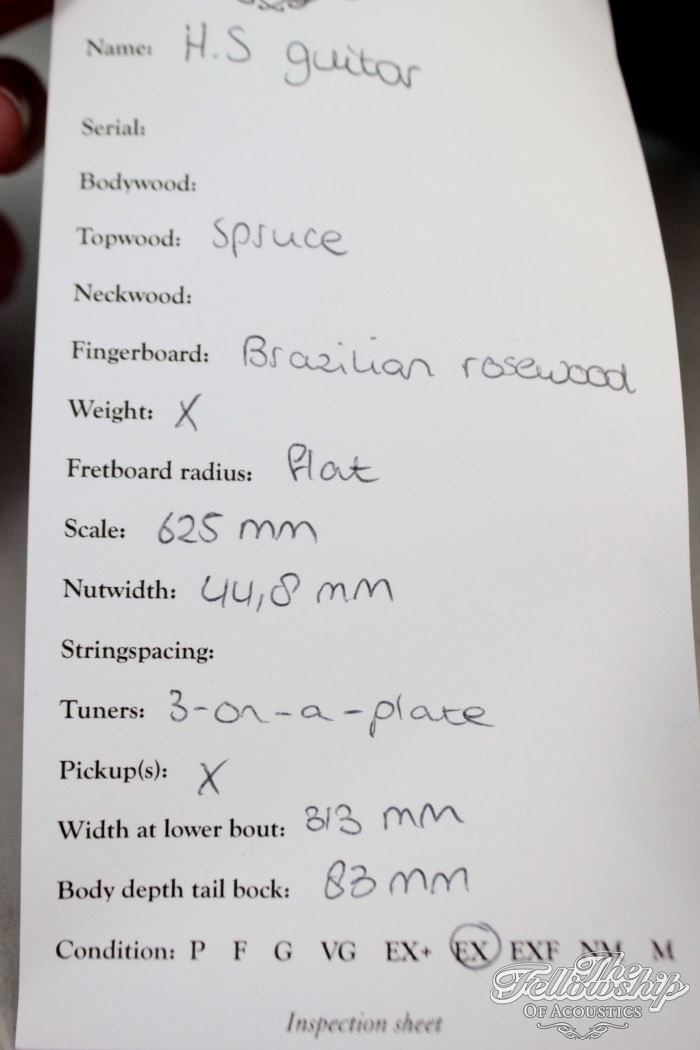 Name: H.S guitar
Serial:
Bodywood:
Topwood: Spruce
Neckwood:
Fingerboard: Brazilian rosewood
Weight: X
Fretboard radius: flat
Scale: 625 mm
Nutwidth: 44,8 mm
Stringspacing:
Tuners: 3-on-a-plate
Pickup(s): X
Width at lower bout: 313 mm
Body depth tail bock: 83 mm
Condition: P F G VG EX+ EX EXF NM M
The
Fellowship
OF ACOUSTICS
Inspection sheet